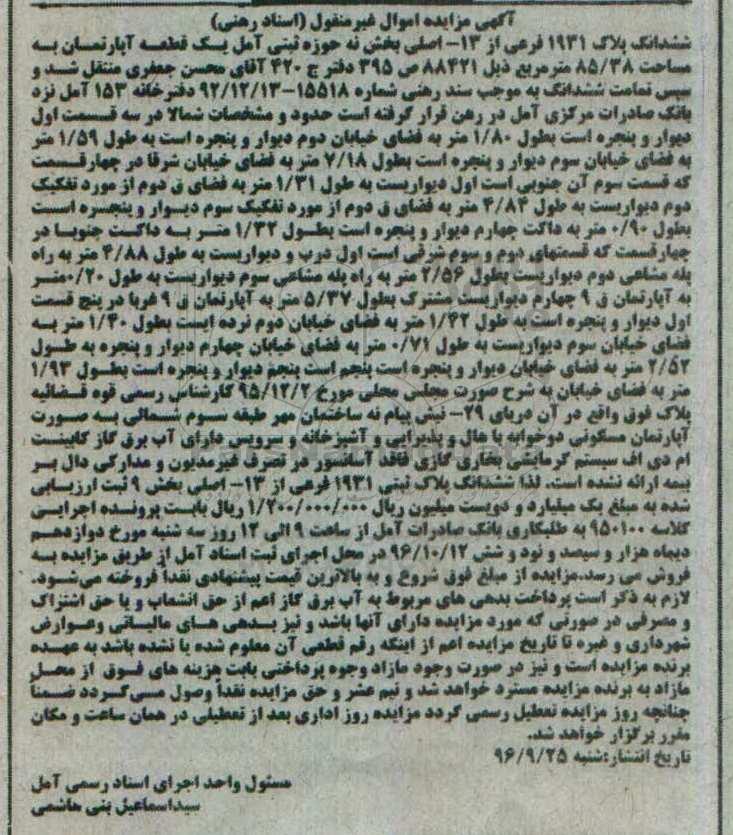 آگهی مزایده اموال غیرمنقول (اسناد رهنی)
ششدانگ پلاک ۱۹۳۱ فرعی از ۱۳- اصلی بخش نه حوزه ثبتی آمل یک قطعه آپارتمان به
مساحت ۸۵/۳۸ مترمربع ذیل ۸۸۴۲۱ ص ۳۹۵ دفتر ج ۴۲۰ آقای محسن جعفری منتقل شد و
سپس تمامت ششدانگ به موجب سند رهنی شماره ۱۵۵۱۸-۹۲/۱۲/۱۳ دفترخانه ۱۵۳ آمل نزد
بانک صادرات مرکزی آمل در رهن قرار گرفته است حدود و مشخصات شمالا در سه قسمت اول
دیوار و پنجره است بطول ۱/۸۰ متر به فضای خیابان دوم دیوار و پنجره است به طول ۱/۵۹ متر
به فضای خیابان سوم دیوار و پنجره است بطول ۷/۱۸ متر به فضای خیابان شرقا در چهارقسمت
که قسمت سوم آن جنوبی است اول دیواریست به طول ۱/۳۱ متر به فضای ق دوم از مورد تفکیک
دوم دیواریست به طول ۴/۸۴ متر به فضای ق دوم از مورد تفکیک سوم دیوار و پنجسره است
بطول ۰/۹۰ متر به داکت چهارم دیوار و پنجره است بطول ۱/۳۲ متر به داکت جنوبا در
چهارقسمت که قسمتهای دوم و سوم شرقی است اول درب و دیواریست به طول ۴/۸۸ متر به راه
پله مشاعی دوم دیواریست بطول ۲/۵۶ متر به راه پله مشاعی سوم دیواریست به طول ۰/۲۰متر
به آپارتمان ق ۹ چهارم دیواریست مشترک بطول ۵/۳۷ متر به آپارتمان ق ۹ غربا در پنج قسمت
اول دیوار و پنجره است به طول ۱/۴۲ متر به فضای خیابان دوم نرده ایست بطول ۱/۴۰ متر به
فضای خیابان سوم دیواریست به طول ۰/۷۱ متر به فضای خیابان چهارم دیوار و پنجره به طول
۲/۵۲ متر به فضای خیابان دیوار و پنجره است پنجم است پنجم دیوار و پنجره است بطول ۱/۹۳
متر به فضای خیابان به شرح صورت مجلس محلی مورخ ۹۵/۱۲/۲ کارشناس رسمی قوه قضائیه
پلاک فوق واقع در آن دریای ۲۹- نبش پیام نه ساختمان مهر طبقه سوم شمالی به صورت
آپارتمان مسکونی دوخوابه با هال و پذیرایی و آشپزخانه و سرویس دارای آب برق گاز کابینت
ام دی اف سیستم گرمایشی بخاری گازی فاقد آسانسور در تصرف غیرمدیون و مدارکی دال بر
بیمه ارائه نشده است. لذا ششدانگ پلاک ثبتی ۱۹۳۱ فرعی از ۱۳- اصلی بخش ۹ ثبت ارزیابی
شده به مبلغ یک میلیارد و دویست میلیون ریال ۱/۲۰۰/۰۰۰/۰۰۰ ریال بابت پرونده اجرایی
کلاسه ۹۵۰۱۰۰ به طلبکاری بانک صادرات آمل از ساعت ۹ الی ۱۲ روز سه شنبه مورخ دوازدهم
دیماه هزار و سیصد و نود و شش ۹۶/۱۰/۱۲ در محل اجرای ثبت اسناد آمل از طریق مزایده به
فروش می رسد.مزایده از مبلغ فوق شروع و به بالاترین قیمت پیشنهادی نقداً فروخته می‌شود.
لازم به ذکر است پرداخت بدهی های مربوط به آب برق گاز اعم از حق انشعاب و یا حق اشتراک
و مصرفی در صورتی که مورد مزایده دارای آنها باشد و نیز بدهی های مالیاتی وعوارض
شهرداری و غیره تا تاریخ مزایده اعم از اینکه رقم قطعی آن معلوم شده یا نشده باشد به عهده
برنده مزایده است و نیز در صورت وجود مازاد وجوه پرداختی بابت هزینه های فوق از محل
مازاد به برنده مزایده مسترد خواهد شد و نیم عشر و حق مزایده نقداً وصول می‌گردد ضمناً
چنانچه روز مزایده تعطیل رسمی گردد مزایده روز اداری بعد از تعطیلی در همان ساعت و مکان
مقرر برگزار خواهد شد.
تاریخ انتشار:شنبه ۹۶/۹/۲۵
مسئول واحد اجرای اسناد رسمی آمل
سیداسماعیل بنی هاشمی